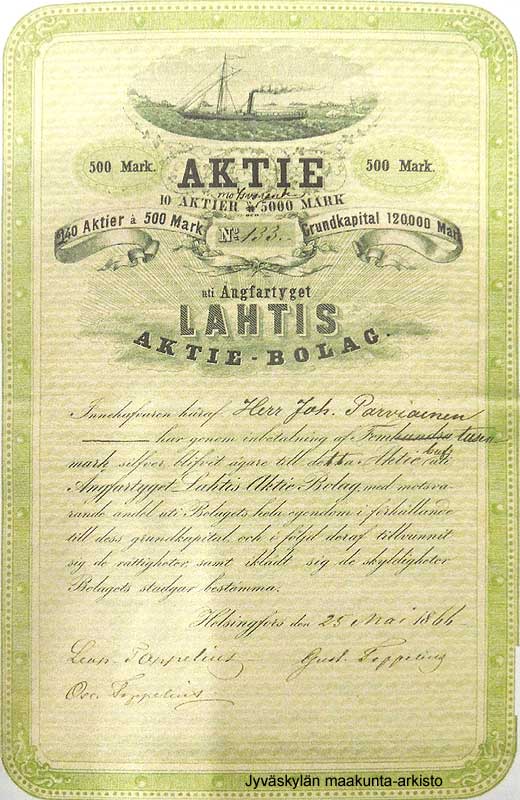 500 Mark.
AKTIE
500 Mark.
motsvarande
10 AKTIER à 5000 MARK
240 Aktier à 500 Mark
OCH
Grundkapital 120,000 Mark
No 133.
uti Ångfartyget
LAHTIS
AKTIE-BOLAG.
Innehafvaren häraf Herr Joh. Parviainen
har genom inbetalning af Femhundra tusen
mark silfver blifvit ägare till detta Aktiebref uti
Ångfartyget Lahtis Aktie Bolag, med motsva-
rande andel uti Bolagets hela egendom i förhållande
till dess grundkapital och i följd deraf tillvunnit
sig de rättigheter, samt iklädt sig de skyldigheter
Bolagets stadgar bestämma.
Helsingfors den 25 Mai 1866
Leon. Toppelius
Gust. Toppelius
Osc. Toppelius
Jyväskylän maakunta-arkisto